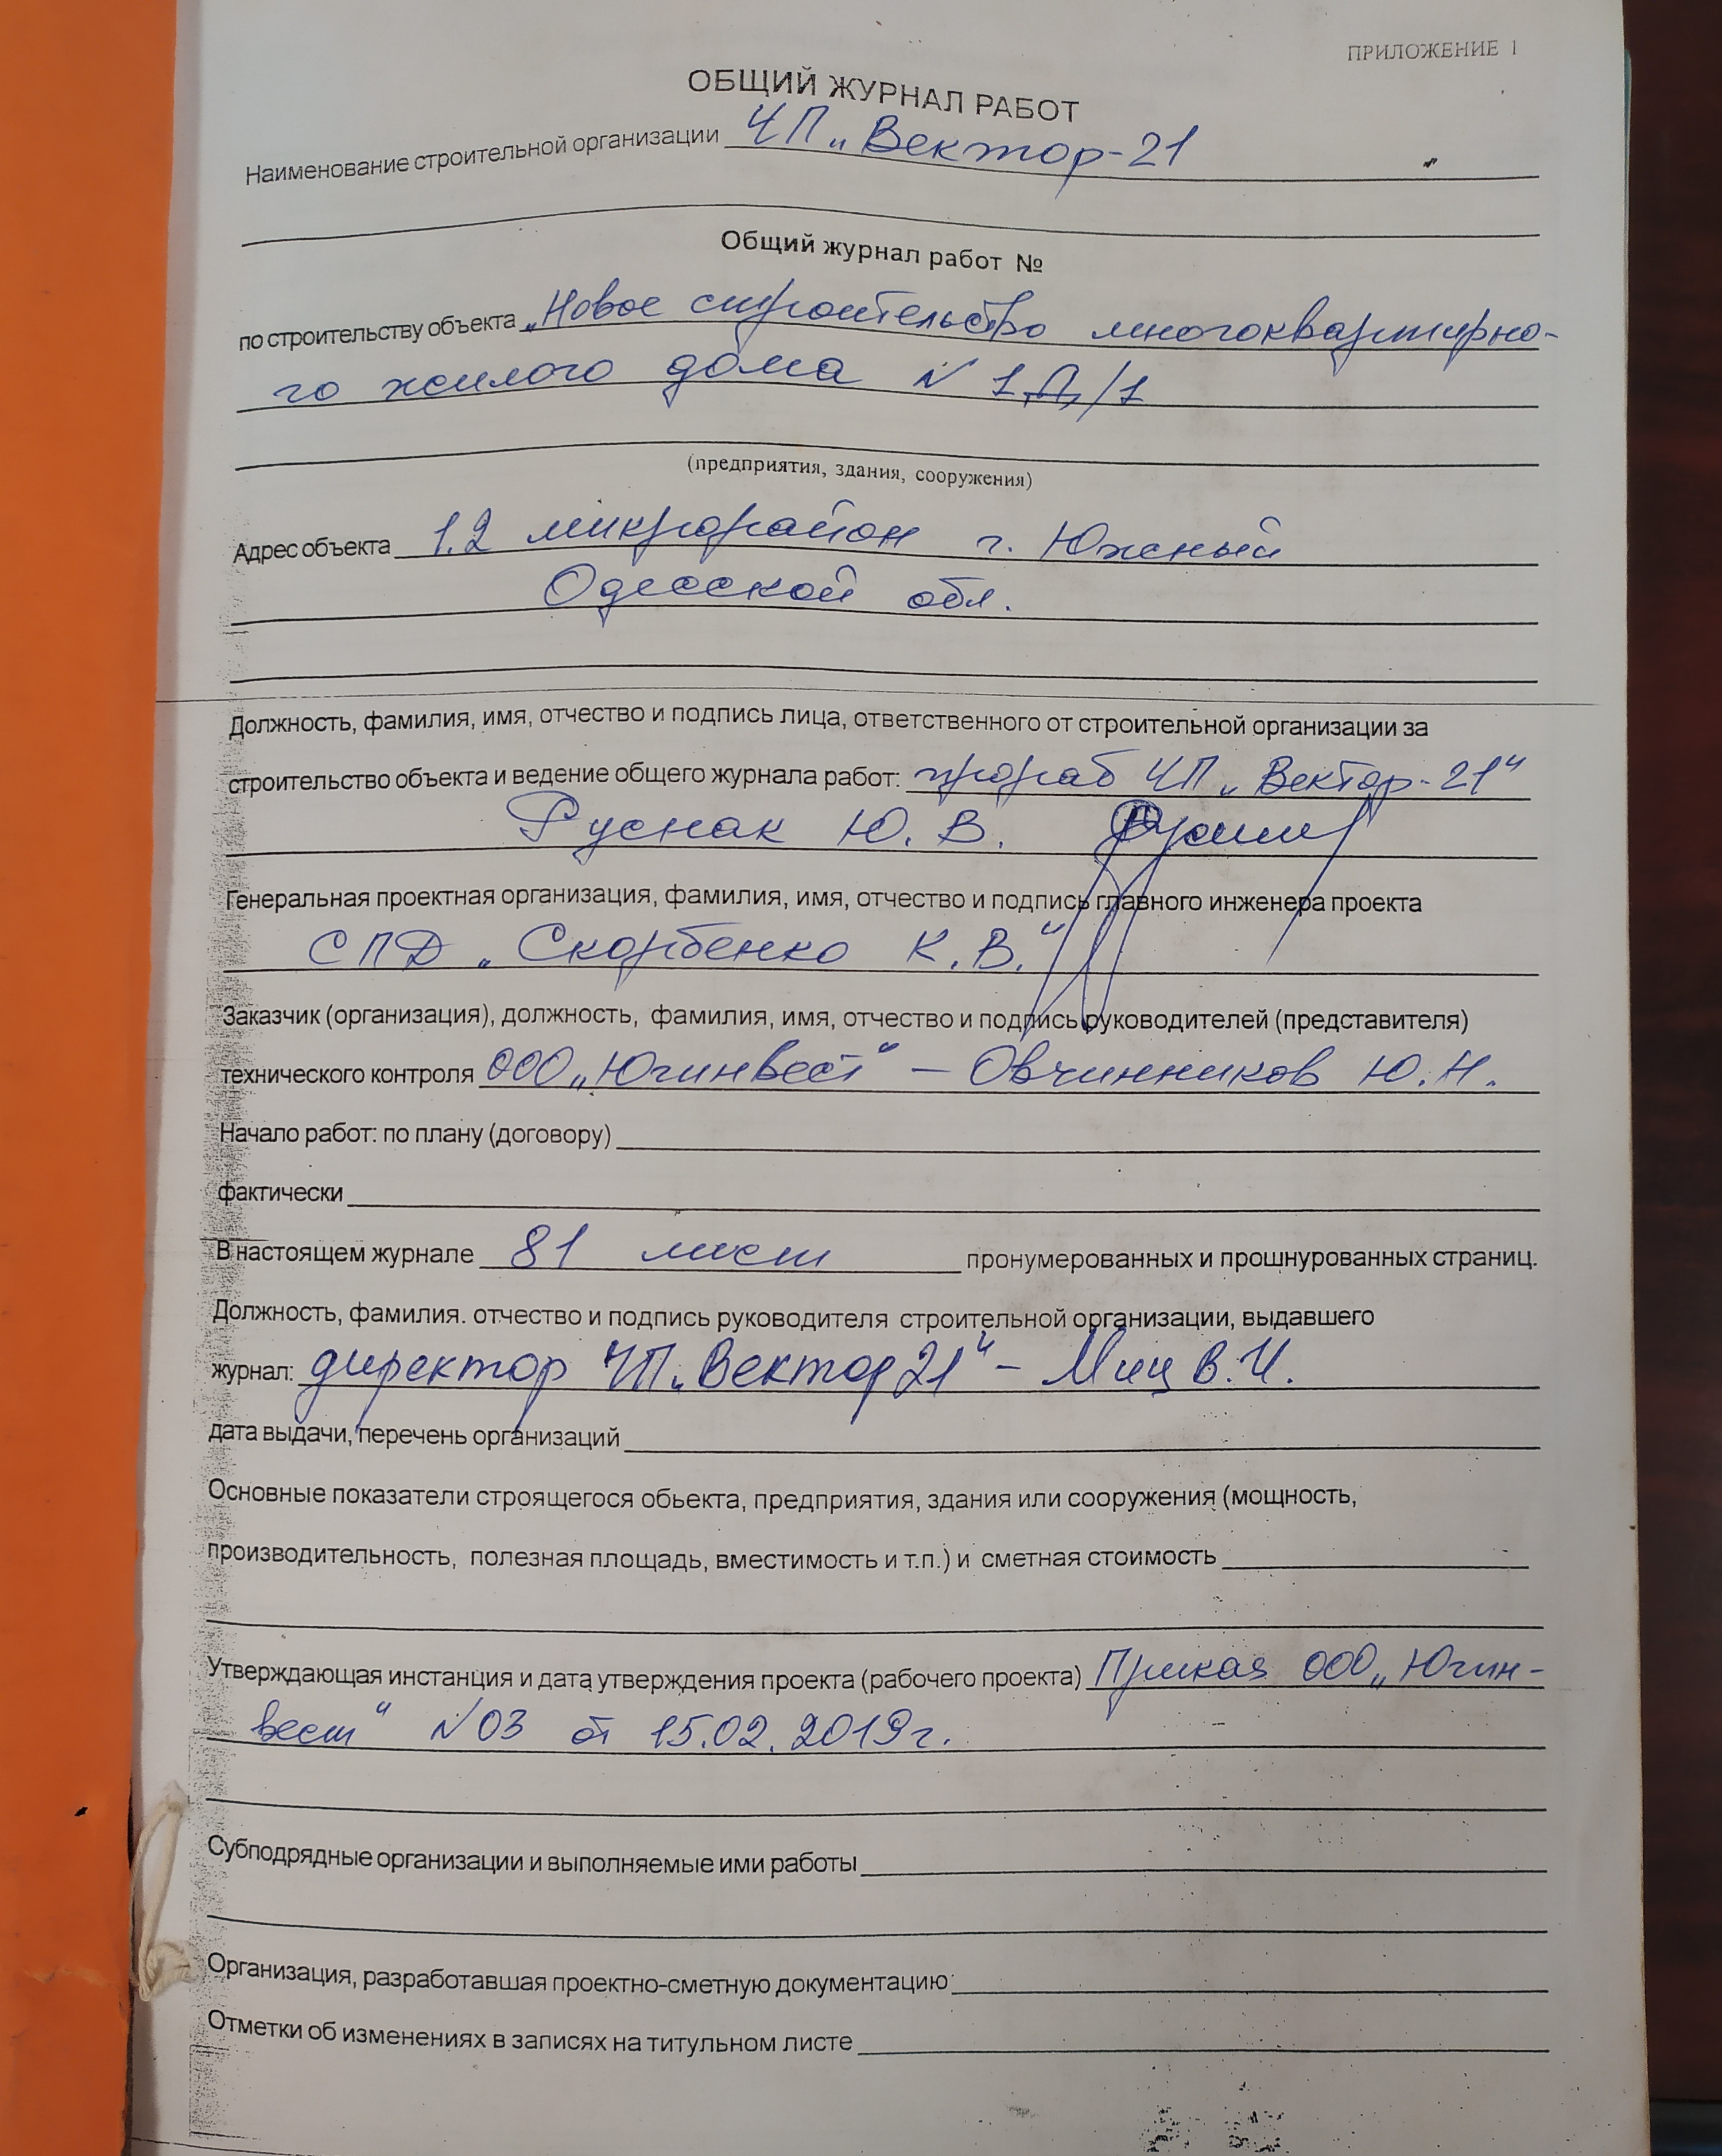 ПРИЛОЖЕНИЕ 1
ОБЩИЙ ЖУРНАЛ РАБОТ
Наименование строительной организации ЧП „Вектор-21 "
Общий журнал работ №
по строительству объекта „Новое строительство многоквартирно-
го жилого дома № 1 Д/1
(предприятия, здания, сооружения)
Адрес объекта 1.2 микрорайон г. Южный
Одесской обл.
Должность, фамилия, имя, отчество и подпись лица, ответственного от строительной организации за
строительство объекта и ведение общего журнала работ: прораб ЧП „Вектор-21"
Руснак Ю. В.
Генеральная проектная организация, фамилия, имя, отчество и подпись главного инженера проекта
СПД „Скорбенко К.В."
Заказчик (организация), должность, фамилия, имя, отчество и подпись руководителей (представителя)
технического контроля ООО „Югинвест" – Овчинников Ю.Н.
Начало работ: по плану (договору)
фактически
В настоящем журнале 81 лист пронумерованных и прошнурованных страниц.
Должность, фамилия. отчество и подпись руководителя строительной организации, выдавшего
журнал: директор ЧП „Вектор 21" – Миц В.И.
дата выдачи, перечень организаций
Основные показатели строящегося обьекта, предприятия, здания или сооружения (мощность,
производительность, полезная площадь, вместимость и т.п.) и сметная стоимость
Утверждающая инстанция и дата утверждения проекта (рабочего проекта) Приказ ООО „Югин-
вест" № 03 от 15.02.2019г.
Субподрядные организации и выполняемые ими работы
Организация, разработавшая проектно-сметную документацию:
Отметки об изменениях в записях на титульном листе